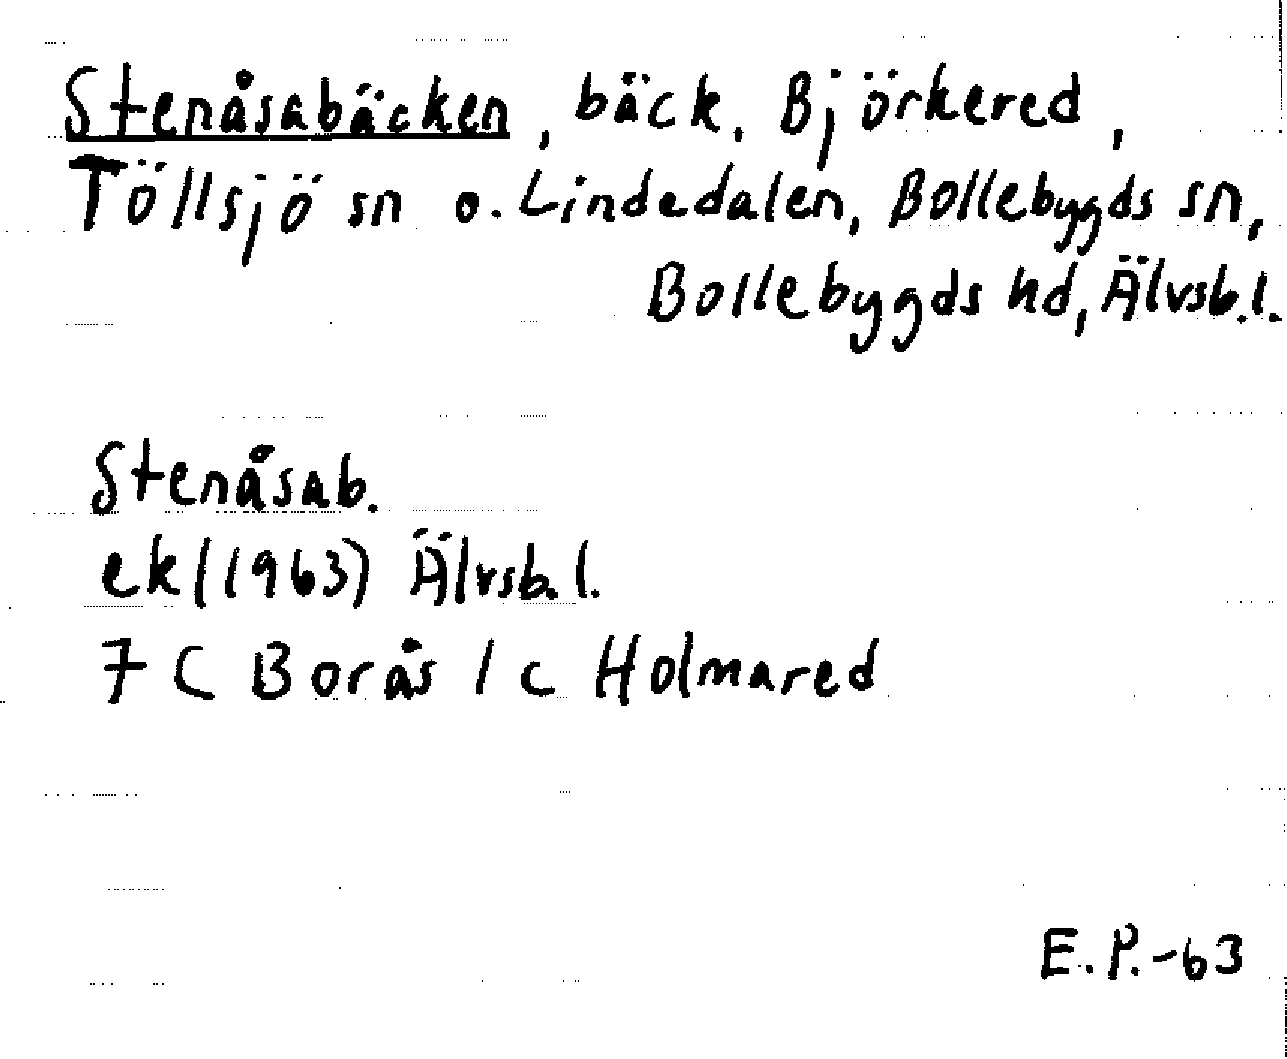 Stenåsabäcken, bäck, Björkered,
Töllsjö sn o. Lindedalen, Bollebygds sn,
Bollebygds hd, Älvsb. l.
Stenåsab.
ek (1963) Älvsb. l.
7 C Borås 1 c Holmared
E. P. -63